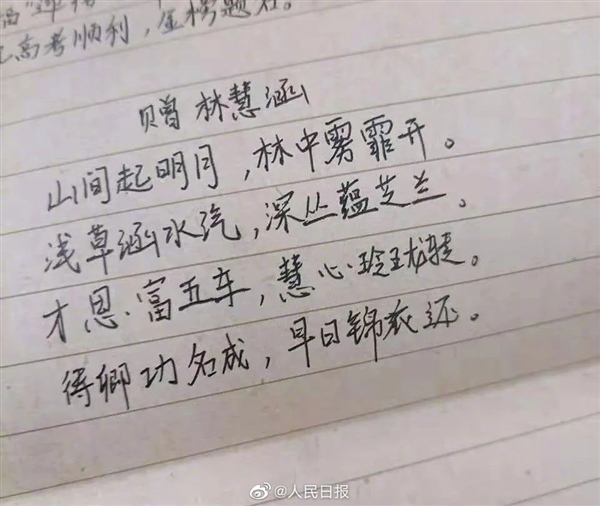 高考顺利，金榜题名。
赠 林慧涵
山间起明月，林中雾霏开。
浅草涵水汽，深丛蕴芝兰。
才思富五车，慧心玲珑转。
得卿功名成，早日锦衣还。
@人民日报